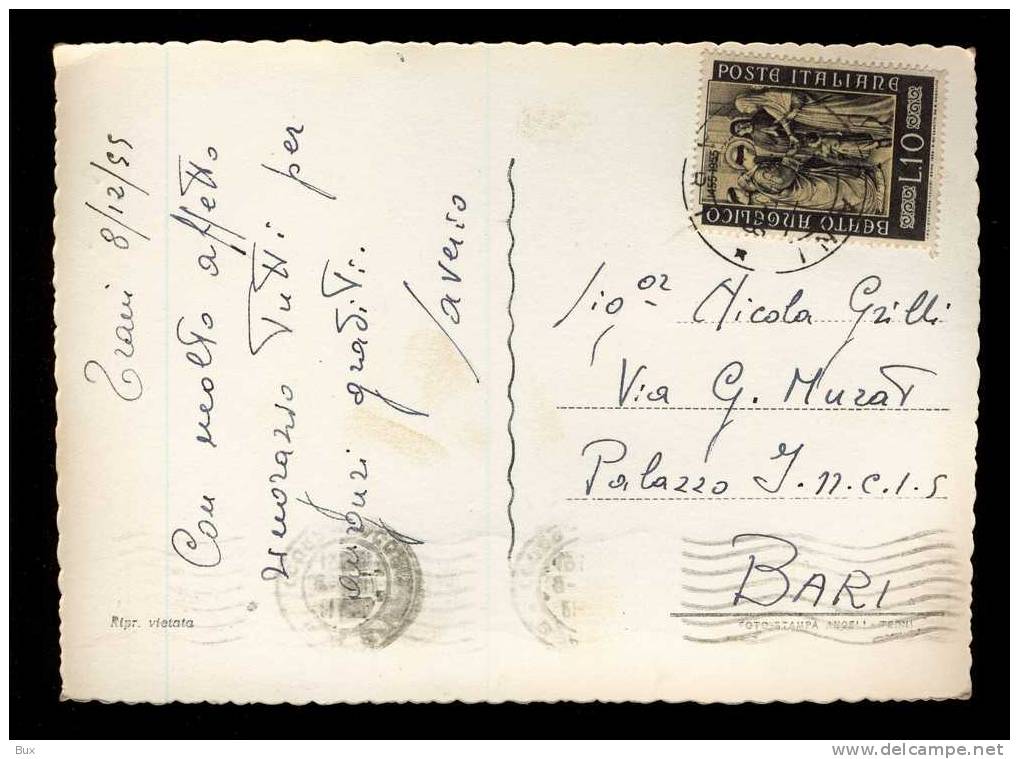 Trani 8/12/55
Con molto affetto
ringrazio tutti per
auguri graditi.
Saverio
POSTE ITALIANE
L.10
1455-1955
BEATO ANGELICO
Sig.or Nicola Grilli
Via G. Murat
Palazzo I.n.c.i.s
BARI
Ripr. vietata
FOTO-STAMPA ANGELI - TERNI
Bux
http://www.delcampe.net